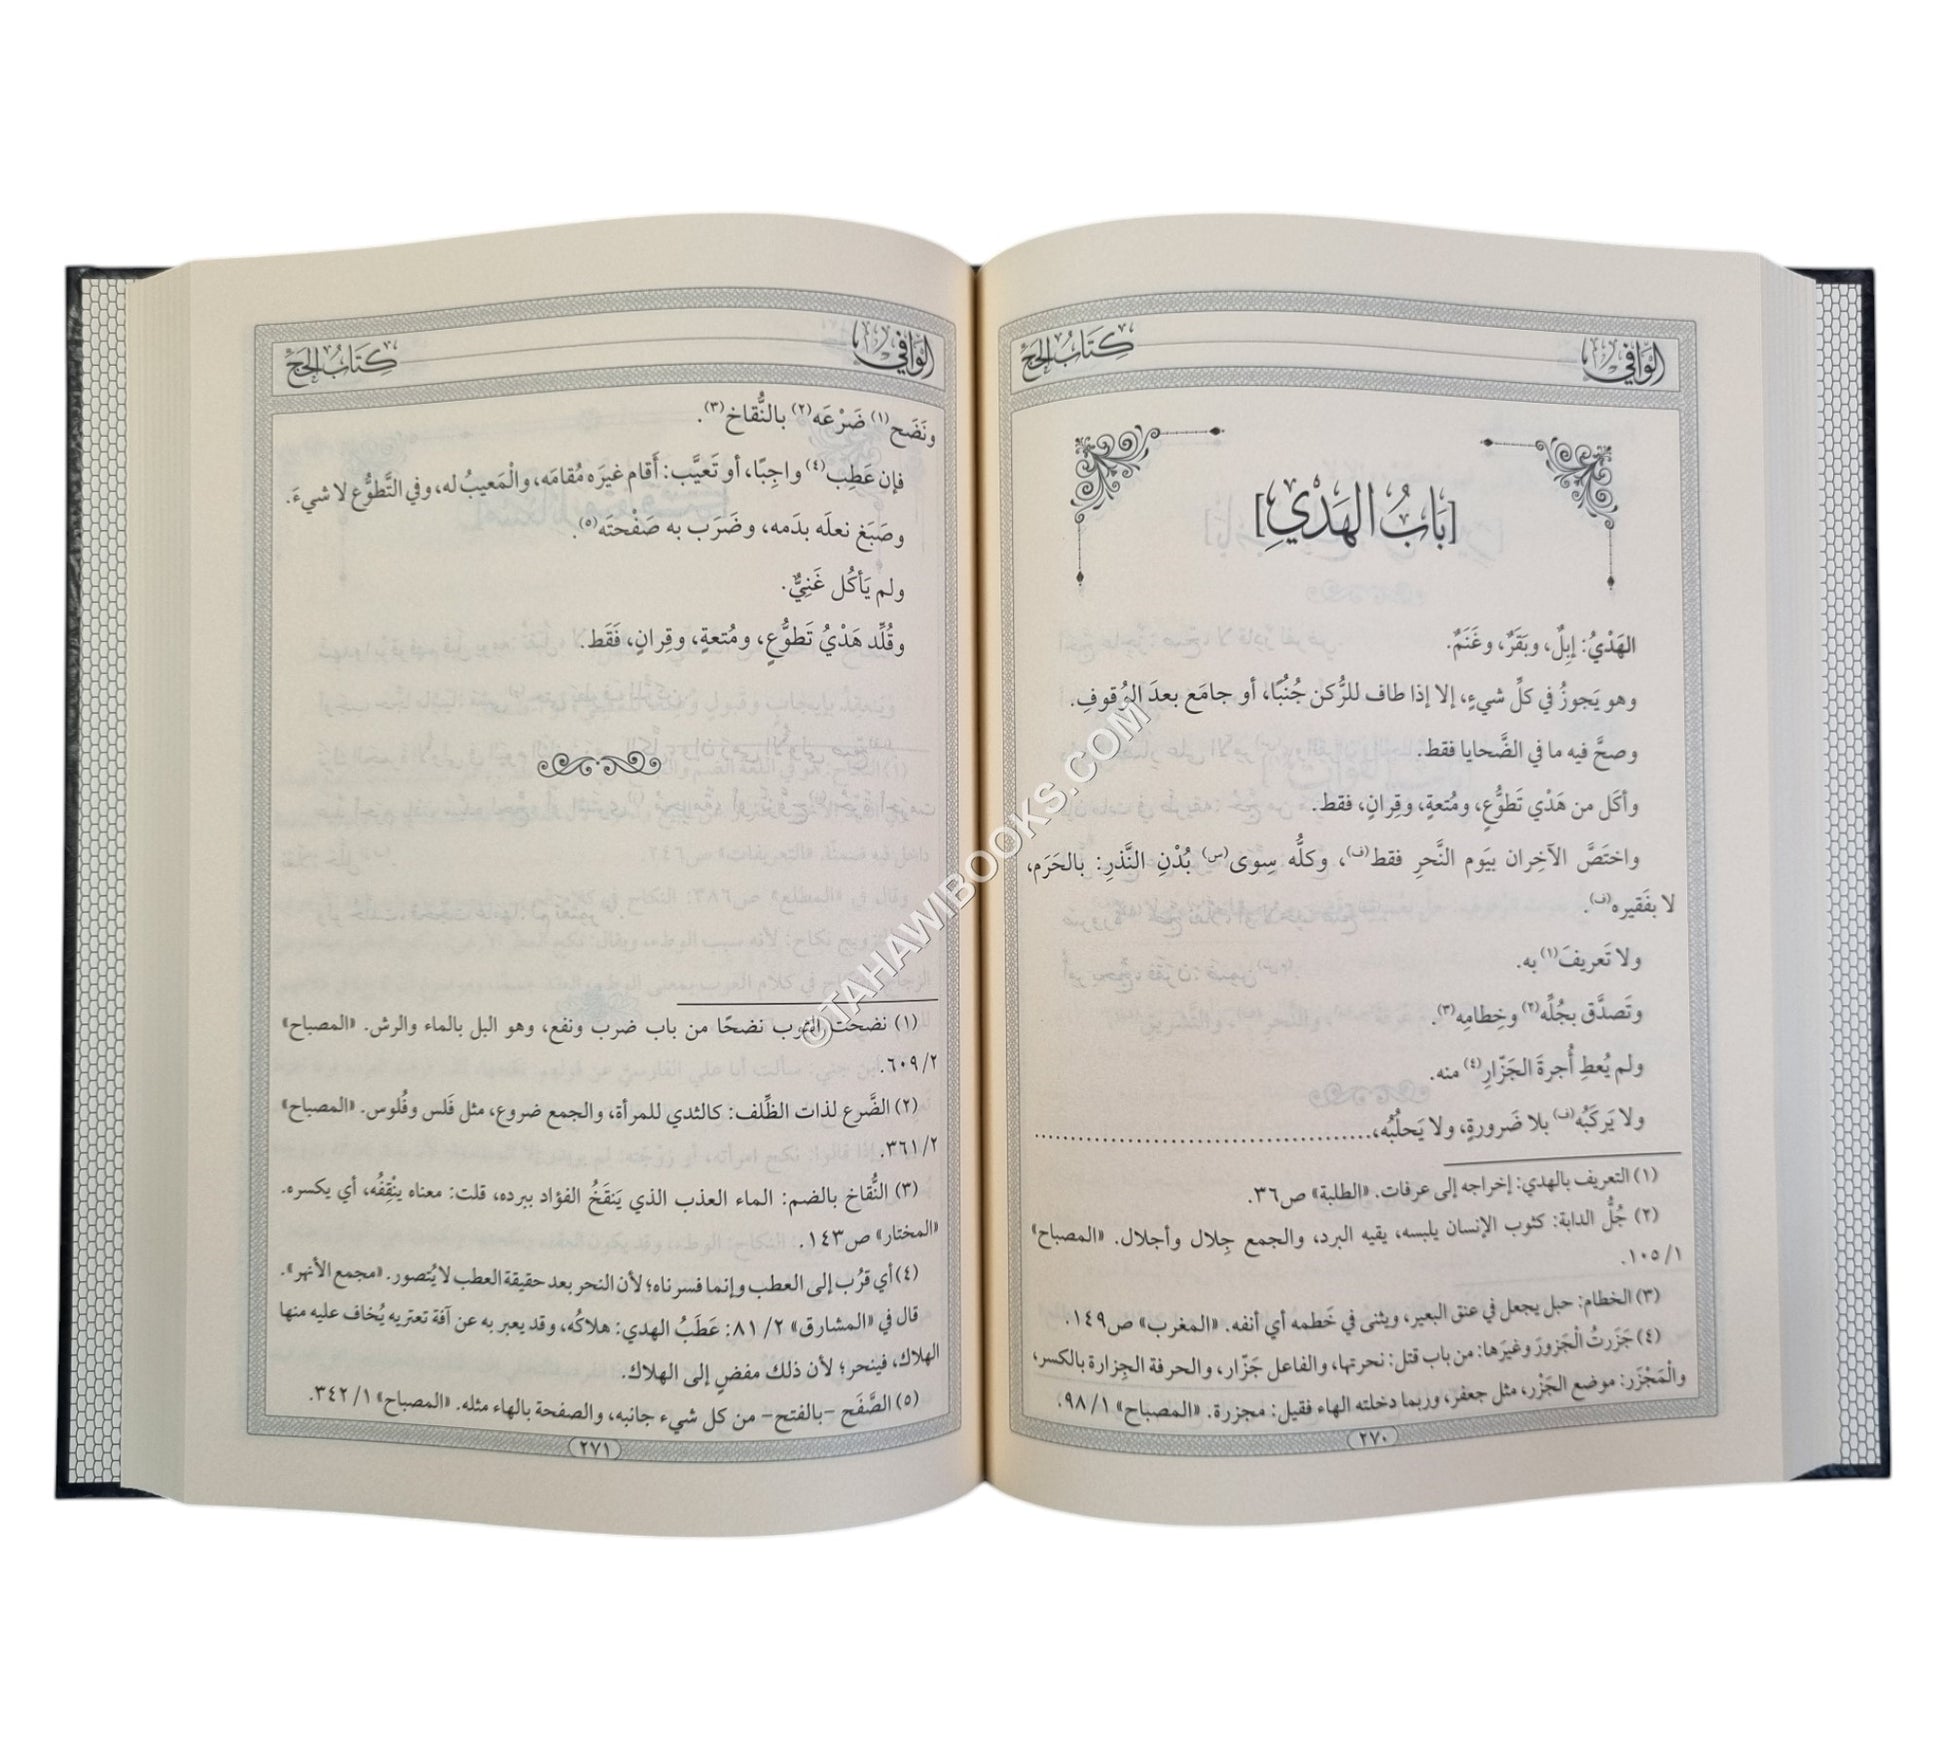 الوافي
كتاب الحج
[بَابُ الهَدْيِ]
الهَدْيُ: إبِلٌ، وبَقَرٌ، وغَنَمٌ.
وهو يَجوزُ في كلِّ شيءٍ، إلا إذا طاف للرُّكن جُنُبًا، أو جامَع بعدَ الوُقوفِ.
وصحَّ فيه ما في الضَّحايا فقط.
وأكَل من هَدْي تَطوُّعٍ، ومُتعةٍ، وقِرانٍ، فقط.
واختَصَّ الآخِران بيَوم النَّحرِ فقط(ف)، وكلُّه سِوى(س) بُدْنِ النَّذرِ: بالحَرَم،
لا بفَقيره(ف).
ولا تَعريفَ(١) به.
وتَصدَّق بجُلِّه(٢) وخِطامِه(٣).
ولم يُعطِ أُجرةَ الجَزّارِ(٤) منه.
ولا يَركَبُه(ف) بلا ضَرورةٍ، ولا يَحلُبُه،......................................
(١) التعريف بالهدي: إخراجه إلى عرفات. «الطلبة» ص٣٦.
(٢) جُلُّ الدابة: كثوب الإنسان يلبسه، يقيه البرد، والجمع جِلال وأجلال. «المصباح»
١/ ١٠٥.
(٣) الخطام: حبل يجعل في عنق البعير، ويثنى في خَطمه أي أنفه. «المغرب» ص١٤٩.
(٤) جَزَرتُ الْجَزورَ وغيَرها: من باب قتل: نحرتها، والفاعل جَزّار، والحرفة الجِزارة بالكسر،
والْمَجْزَر: موضع الجَزْر، مثل جعفر، وربما دخلته الهاء فقيل: مجزرة. «المصباح» ١/ ٩٨.
٢٧٠
الوافي
كتاب الحج
ونَضَح(١) ضَرْعَه(٢) بالنُّقاخ(٣).
فإن عَطِب(٤) واجِبًا، أو تَعيَّب: أَقام غيرَه مُقامَه، والْمَعيبُ له، وفي التَّطوُّع لا شيءَ.
وصَبَغ نعلَه بدَمه، وضَرَب به صَفْحتَه(٥).
ولم يَأكُل غَنِيٌّ.
وقُلِّد هَدْيُ تَطوُّعٍ، ومُتعةٍ، وقِرانٍ، فَقَط.
(١) نضحت الثوب نضحًا من باب ضرب ونفع، وهو البل بالماء والرش. «المصباح»
٢/ ٦٠٩.
(٢) الضَّرع لذات الظِّلف: كالثدي للمرأة، والجمع ضروع، مثل فَلس وفُلوس. «المصباح»
٢/ ٣٦١.
(٣) النُّقاخ بالضم: الماء العذب الذي يَنقَخُ الفؤاد ببرده، قلت: معناه ينْقِفُه، أي يكسره.
«المختار» ص١٤٣.
(٤) أي قرُب إلى العطب وإنما فسرناه؛ لأن النحر بعد حقيقة العطب لا يُتصور. «مجمع الأنهر».
قال في «المشارق» ٢/ ٨١: عَطَبُ الهدي: هلاكُه، وقد يعبر به عن آفة تعتريه يُخاف عليه منها
الهلاك، فينحر؛ لأن ذلك مفضٍ إلى الهلاك.
(٥) الصَّفَح –بالفتح– من كل شيء جانبه، والصفحة بالهاء مثله. «المصباح» ١/ ٣٤٢.
٢٧١
©TAHAWIBOOKS.COM